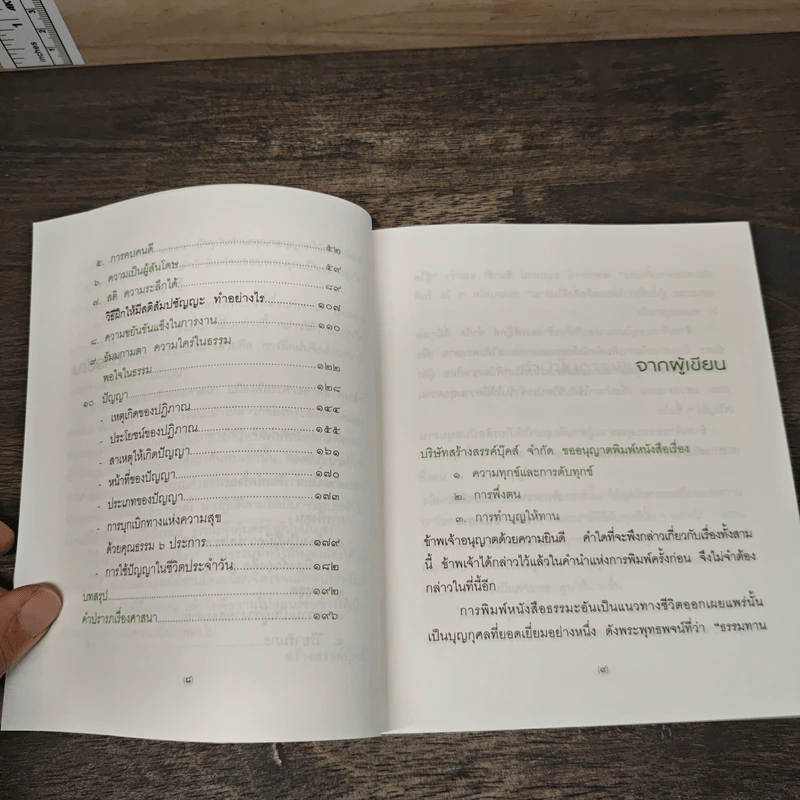 ๕. การคบคนดี ๕๒
๖. ความเป็นผู้สันโดษ ๕๙
๗. สติ ความระลึกได้ ๘๙
วิธีฝึกให้มีสติสัมปชัญญะ ทำอย่างไร ๑๐๗
๘. ความขยันขันแข็งในการงาน ๑๑๐
๙. ธัมมกามตา ความใคร่ในธรรม
พอใจในธรรม ๑๒๒
๑๐. ปัญญา ๑๒๘
- เหตุเกิดของปฏิภาณ ๑๔๔
- ประโยชน์ของปฏิภาณ ๑๕๕
- สาเหตุให้เกิดปัญญา ๑๖๑
- หน้าที่ของปัญญา ๑๗๐
- ประเภทของปัญญา ๑๗๓
- การบุกเบิกทางแห่งความสุข
ด้วยคุณธรรม ๖ ประการ ๑๗๙
- การใช้ปัญญาในชีวิตประจำวัน ๑๘๒
บทสรุป ๑๙๒
คำปรารภเรื่องศาสนา ๑๙๖
(๘)
จากผู้เขียน
บริษัทสร้างสรรค์บุ๊คส์ จำกัด ขออนุญาตพิมพ์หนังสือเรื่อง
๑. ความทุกข์และการดับทุกข์
๒. การพึ่งตน
๓. การทำบุญให้ทาน
ข้าพเจ้าอนุญาตด้วยความยินดี คำใดที่จะพึงกล่าวเกี่ยวกับเรื่องทั้งสาม
นี้ ข้าพเจ้าได้กล่าวไว้แล้วในคำนำแห่งการพิมพ์ครั้งก่อน จึงไม่จำต้อง
กล่าวในที่นี้อีก
การพิมพ์หนังสือธรรมะอันเป็นแนวทางชีวิตออกเผยแพร่นั้น
เป็นบุญกุศลที่ยอดเยี่ยมอย่างหนึ่ง ดังพระพุทธพจน์ที่ว่า "ธรรมทาน
(๙)
inches
1
2
3